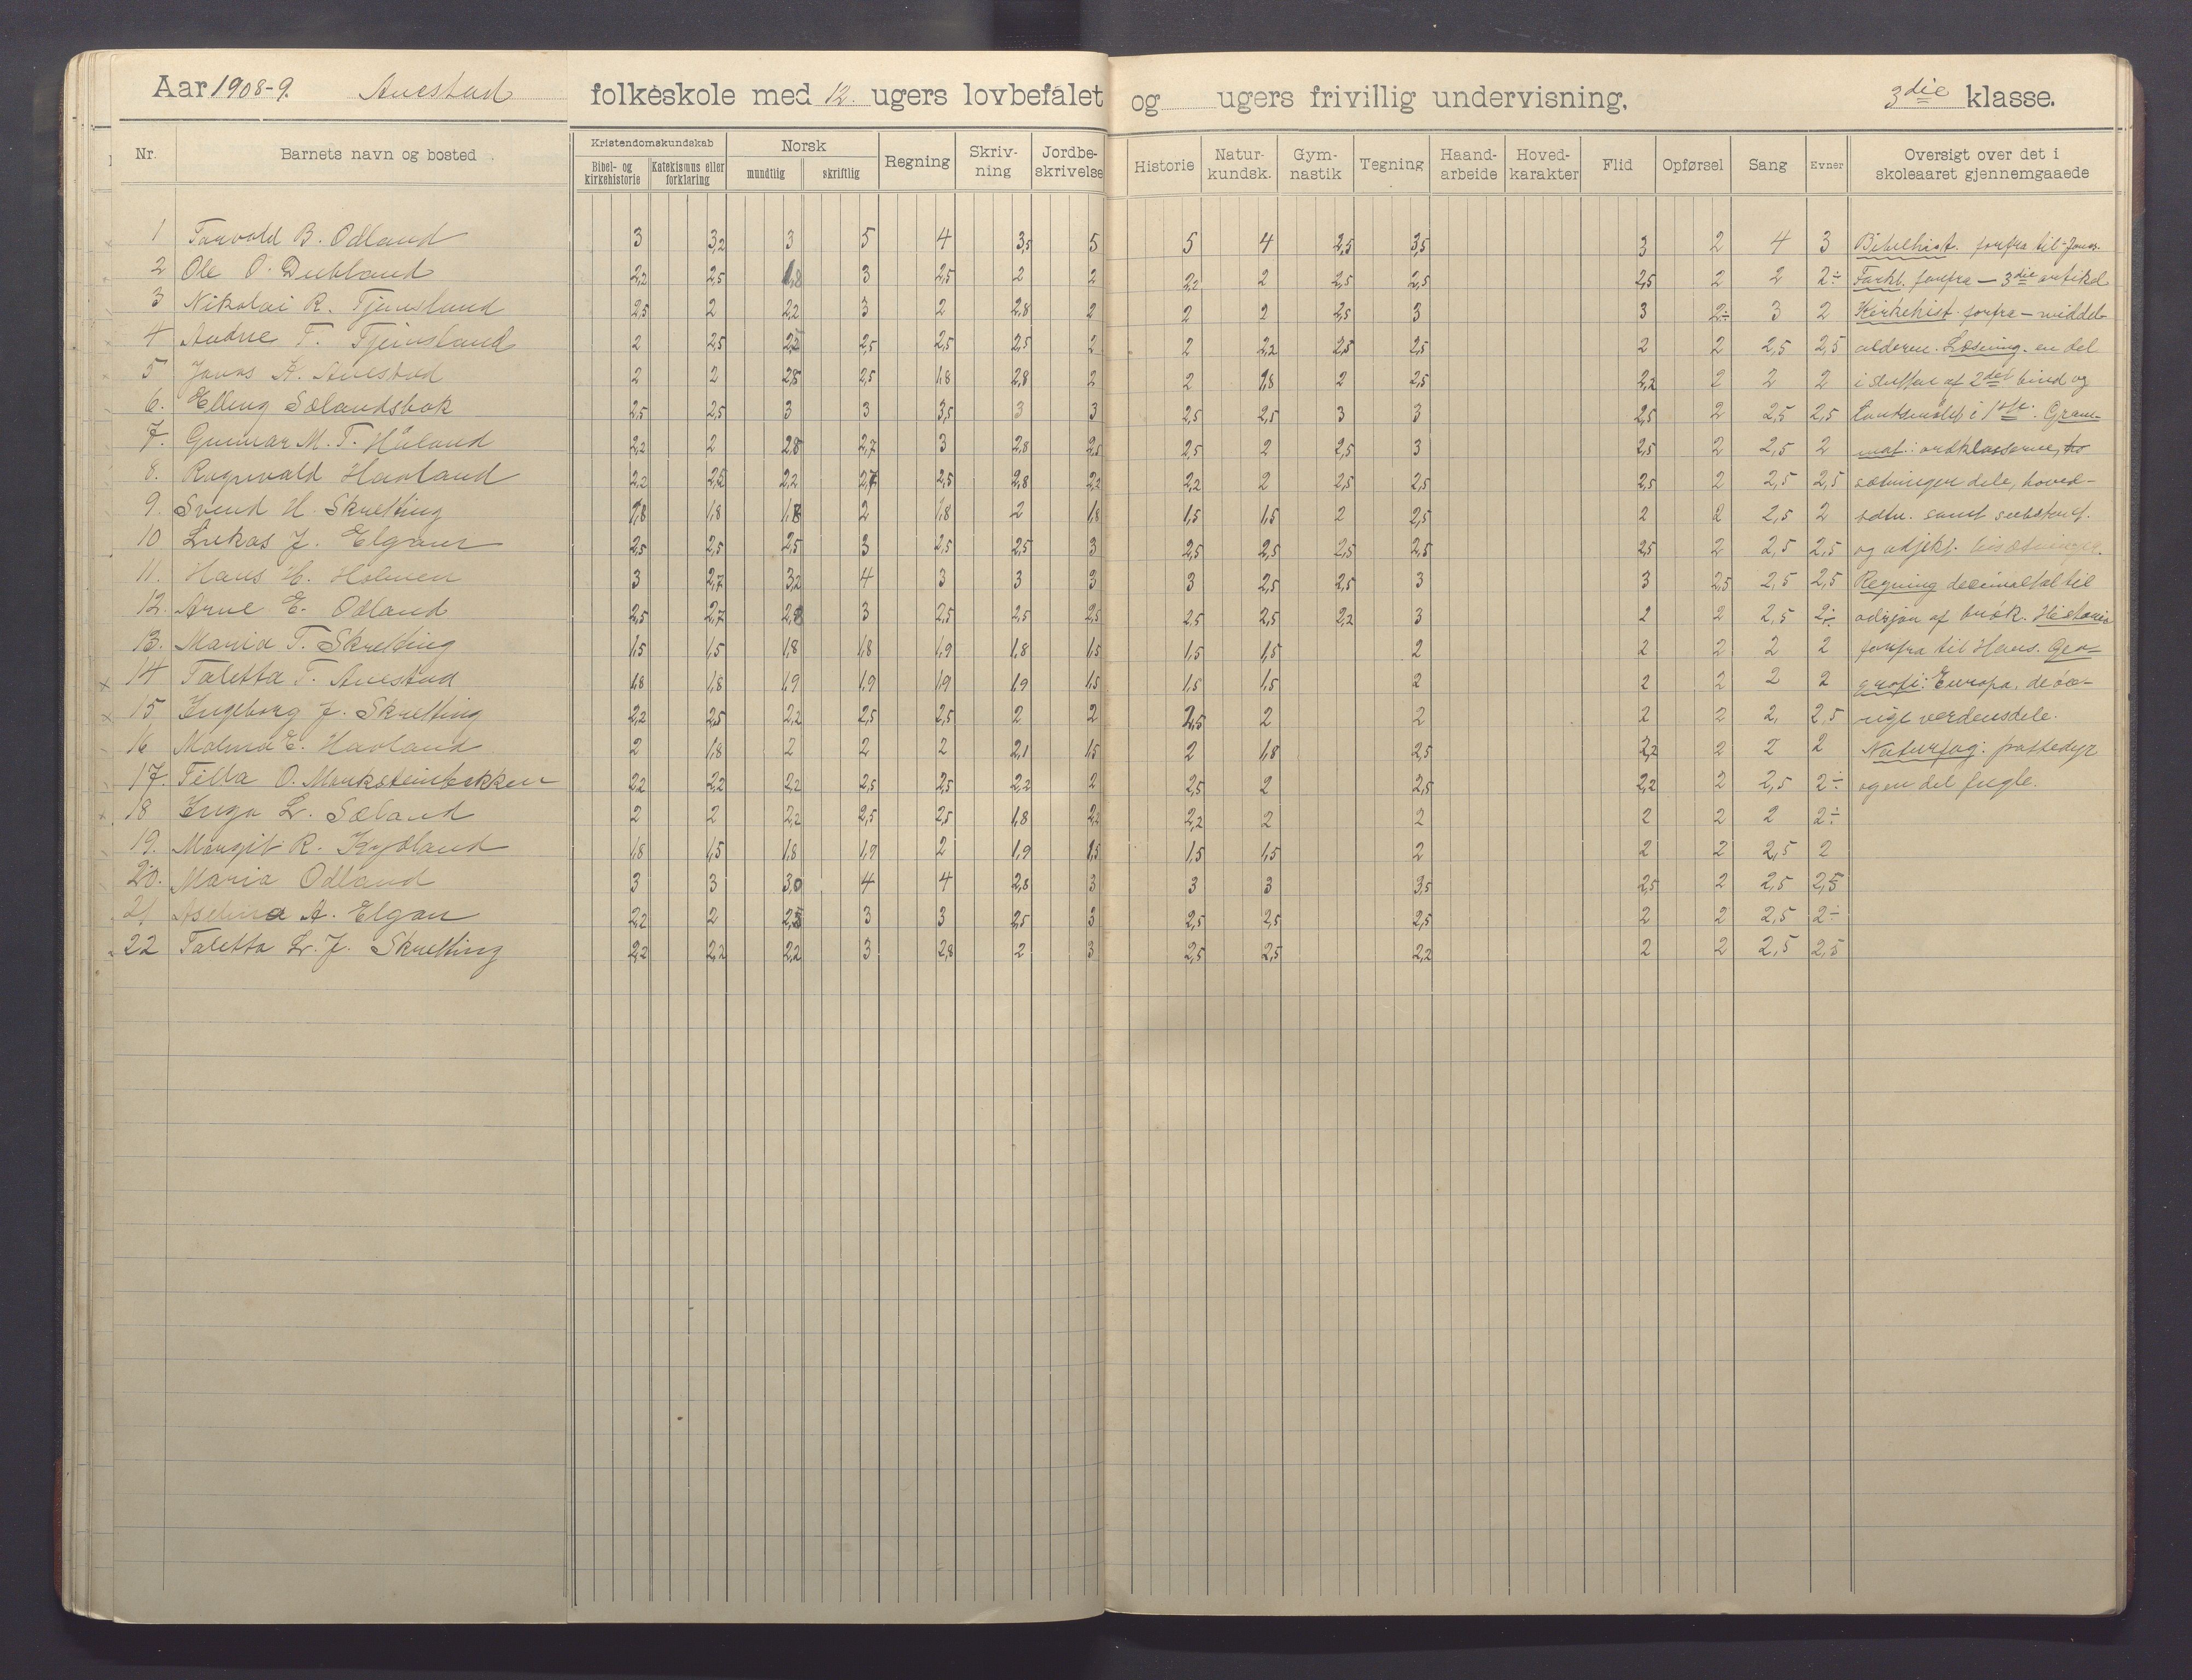 Aar 1908-9. Auestad folkeskole med 12. ugers lovbefalet og ugers frivillig undervisning. 3die klasse.
Nr. Barnets navn og bosted Kristendomskundskab Norsk Regning Skriv-ning Jordbe-skrivelse Historie Natur-kundsk. Gym-nastik Tegning Haand-arbeide Hoved-karakter Flid Opførsel Sang Evner Oversigt over det i skoleaaret gjennemgaaede
Bibel- og kirkehistorie Katekismus eller forklaring mundtlig skriftlig
1 Torvald B. Odland 3 3,2 3 5 4 3,5 5 5 4 2,5 3,5 3 2 4 3 Bibelhist. forfra til Jonas.
2 Ole O. Dubland 2,2 2,5 1,8 3 2,5 2 2 2,2 2 2,5 2,5 2,5 2 2 2÷ Forkl. forfra – 3die artikel
3 Nikolai R. Tjensland 2,5 2 2,2 3 2 2,8 2 2 2 2,5 3 3 2÷ 3 2 Kirkehist. forfra – middel-
4 Andre T. Tjensland 2 2,5 2,5 2,5 2,5 2,5 2 2 2,2 2,5 2,5 2 2 2,5 2,5 alderen. Læsning. en del
5 Jonas A. Auestad 2 2 2,8 2,5 1,8 2,8 2 2 1,8 2 2,5 2,2 2 2 2 i slutten af 2det bind og
6. Elling Sælandsbak 2,5 2,5 3 3 3,5 3 3 2,5 2,5 3 3 2,5 2 2,5 2,5 i 1ste. Gram-
7. Gunnar M. T. Håland 2,2 2 2,8 2,7 3 2,8 2,5 2,5 2 2,5 3 2,5 2 2,5 2 mat.: ordklasserne,
8. Ragnvald Havland 2,2 2,5 2,2 2,7 2,5 2,8 2,2 2,2 2 2,5 2,5 2,5 2 2,5 2,5 sætningens dele, hoved-
9. Svend H. Skretting 1,8 1,8 1,8 2 1,8 2 1,8 1,5 1,5 2 2,5 2 2 2,5 2 sætn. samt substant.
10 Lukas J. Elgan 2,5 2,5 2,5 3 2,5 2,5 3 2,5 2,5 2,5 2,5 2,5 2 2,5 2,5 og adjekt. bisætninger.
11. Hans H. Holmen 3 2,7 3,2 4 3 3 3 3 2,5 2,5 3 3 2,5 2,5 2,5 Regning decimaltal til
12. Arne E. Odland 2,5 2,7 2,8 3 2,5 2,5 2,5 2,5 2,5 2,2 3 2 2 2,5 2÷ adisjon af brøk. Historie
13. Maria T. Skretting 1,5 1,5 1,8 1,8 1,9 1,8 1,5 1,5 1,5 2 2 2 2 2 forfra til Hans. Geo-
14 Taletta T. Auestad 1,8 1,8 1,9 1,9 1,9 1,9 1,5 1,5 1,5 2 2 2 2 2 grafi: Europa, de øv-
15 Ingeborg J. Skretting 2,2 2,5 2,2 2,5 2,5 2 2 2,5 2 2 2 2 2, 2,5 rige verdensdele.
16 Malena E. Havland 2 1,8 2 2 2 2,1 1,5 2 1,8 2,5 2,2 2 2 2 Naturfag: pattedyr
17. Tilla O. Marksteinbakken 2,2 2,2 2,2 2,5 2,5 2,2 2 2,5 2 2,5 2,2 2 2,5 2÷ og en del fugle.
18 Inga L. Sæland 2 2 2,2 2,5 2,5 1,8 2,2 2,2 2 2 2 2 2 2÷
19. Margit R. Kydland 1,8 1,5 1,8 1,9 2 1,9 1,5 1,5 1,5 2 2 2 2,5 2
20. Maria Odland 3 3 3,0 4 4 2,8 3 3 3 3,5 2,5 2 2,5 2,5
21 Aselina A. Elgan 2,2 2 2,5 3 3 2,5 3 2,5 2,5 2,5 2 2 2,5 2÷
22 Taletta L. J. Skretting 2,2 2,2 2,2 3 2,8 2 3 2,5 2,5 2,2 2 2 2,5 2,5